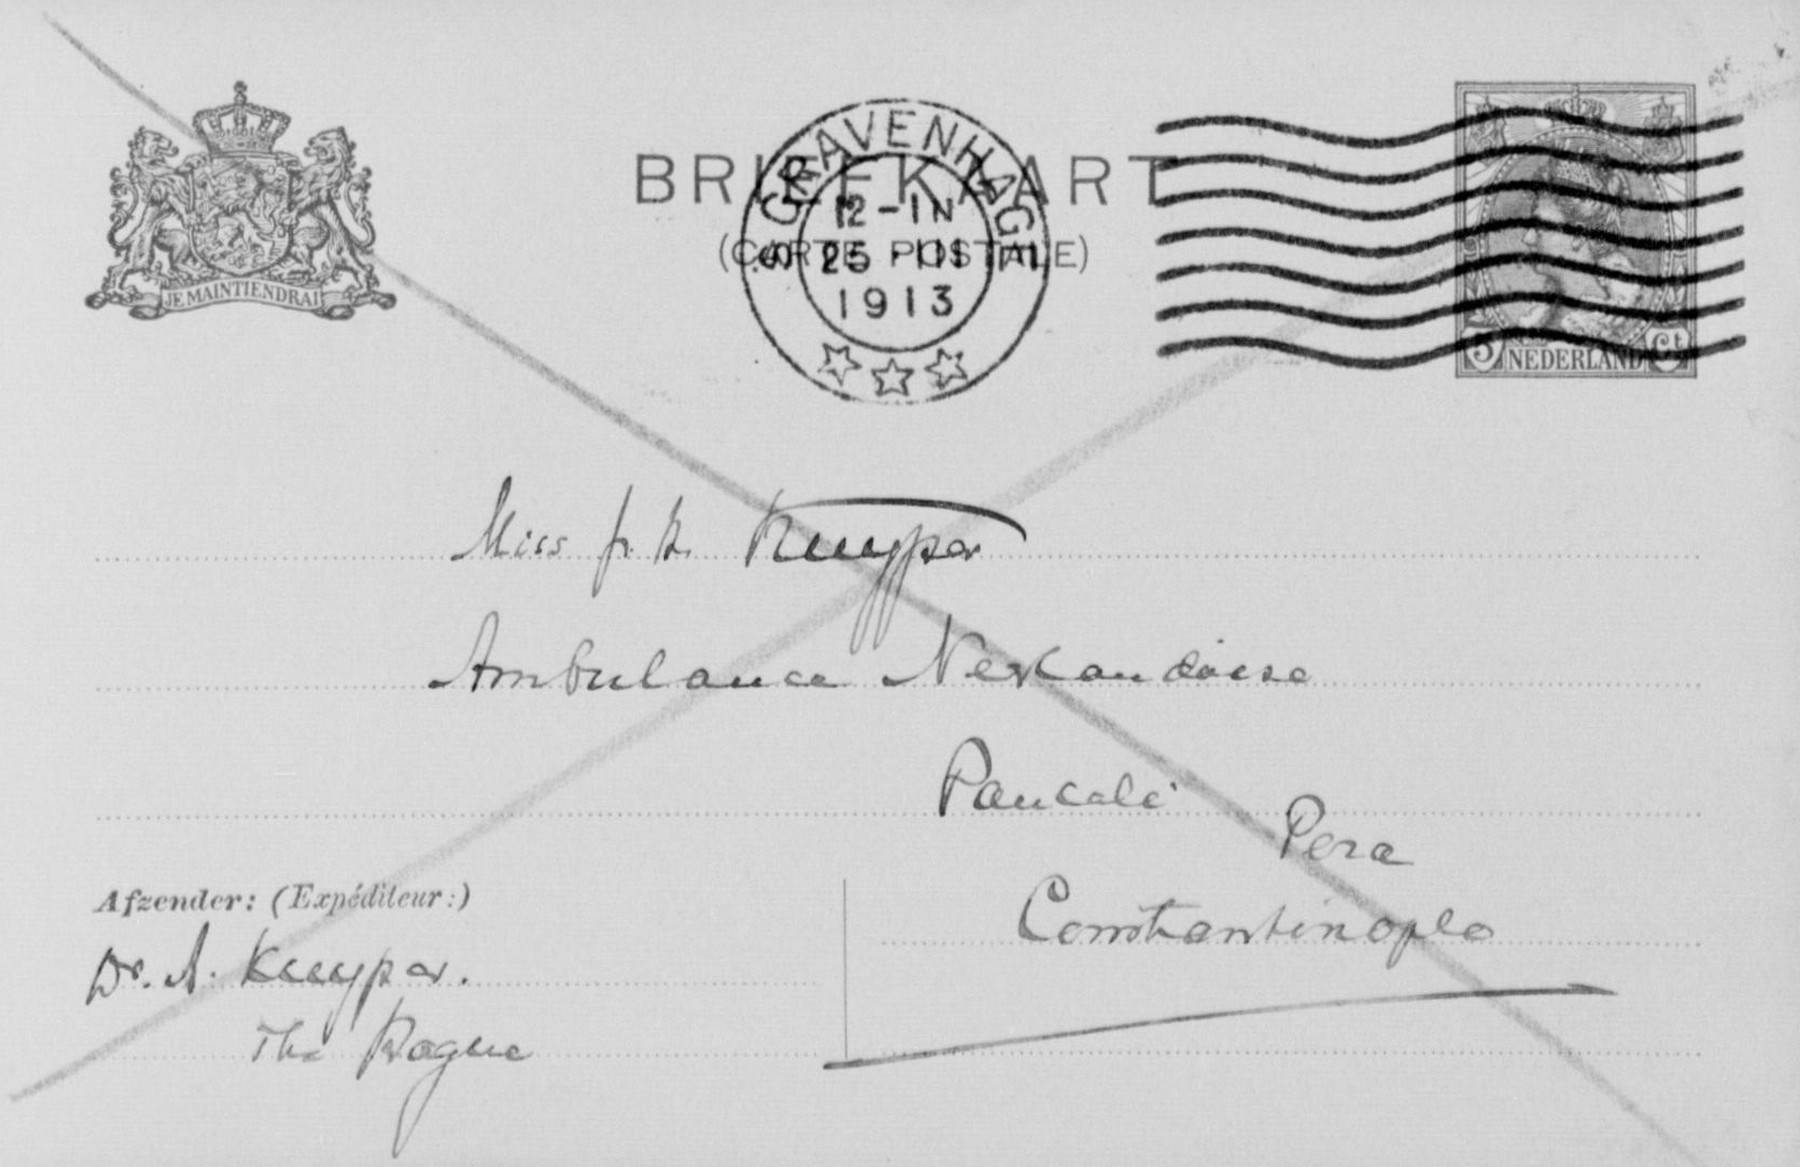 JE MAINTIENDRAI
BRIEFKAART
(CARTE POSTALE)
'S GRAVENHAGE
12-1N
25 III
1913
5 Ct
NEDERLAND
Miss Kuyper
Ambulance Nerlandaise
Pancaldi
Pera
Constantinople
Afzender: (Expéditeur:)
Dr. A. Kuyper.
The Hague